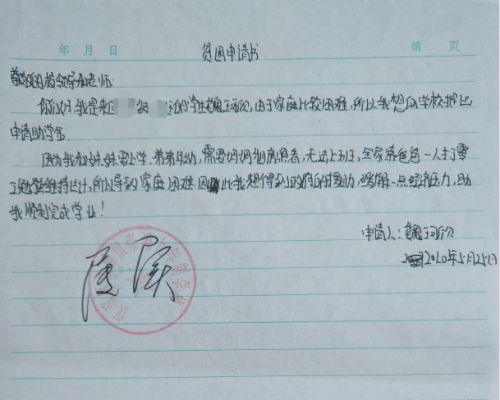 年 月 日 贫困申请书 第 页
尊敬的各领导和老师:
你们好!我是来自 的学生 ,由于家庭比较困难,所以我想向学校提起
申请助学金。
因为我和 上学,弟弟年幼,需要妈妈 照看,无法上班,全家靠爸爸一人打零
工勉强维持生计,所以导致家庭困难,因此我想得到政府的援助,缓解一点经济压力,助
我顺利完成学业!
申请人:
2020年5月25日
属实